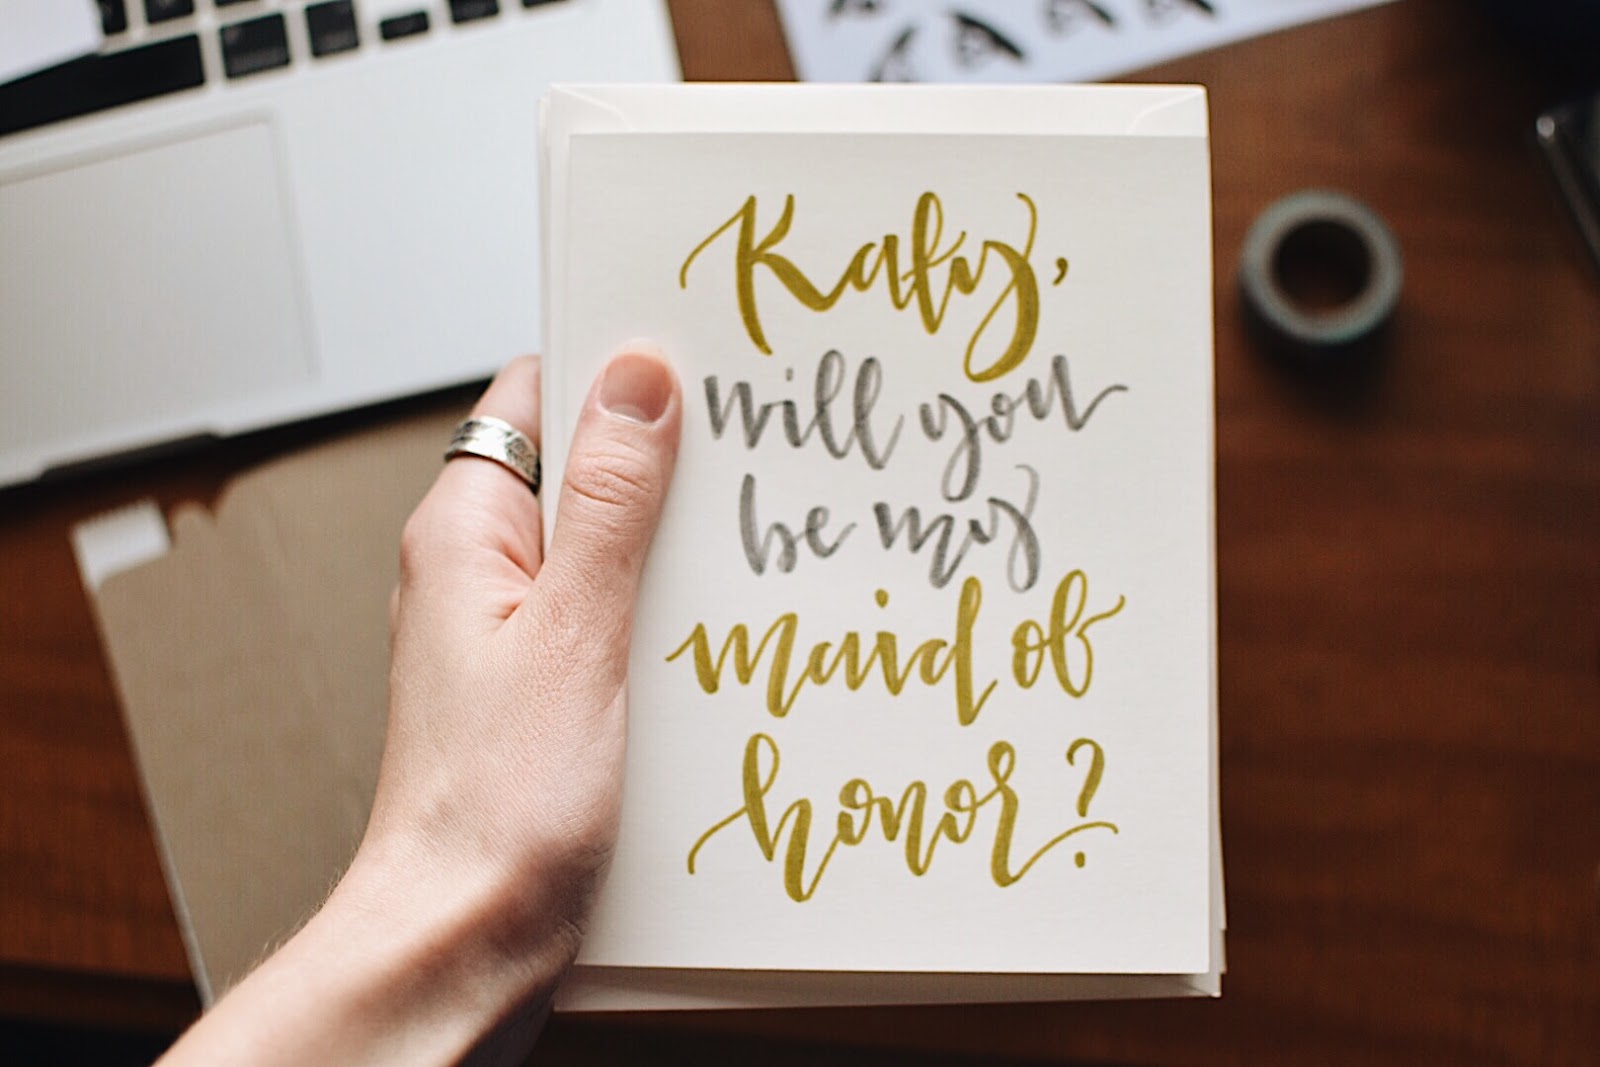 Katy,
will you
be my
maid of
honor?